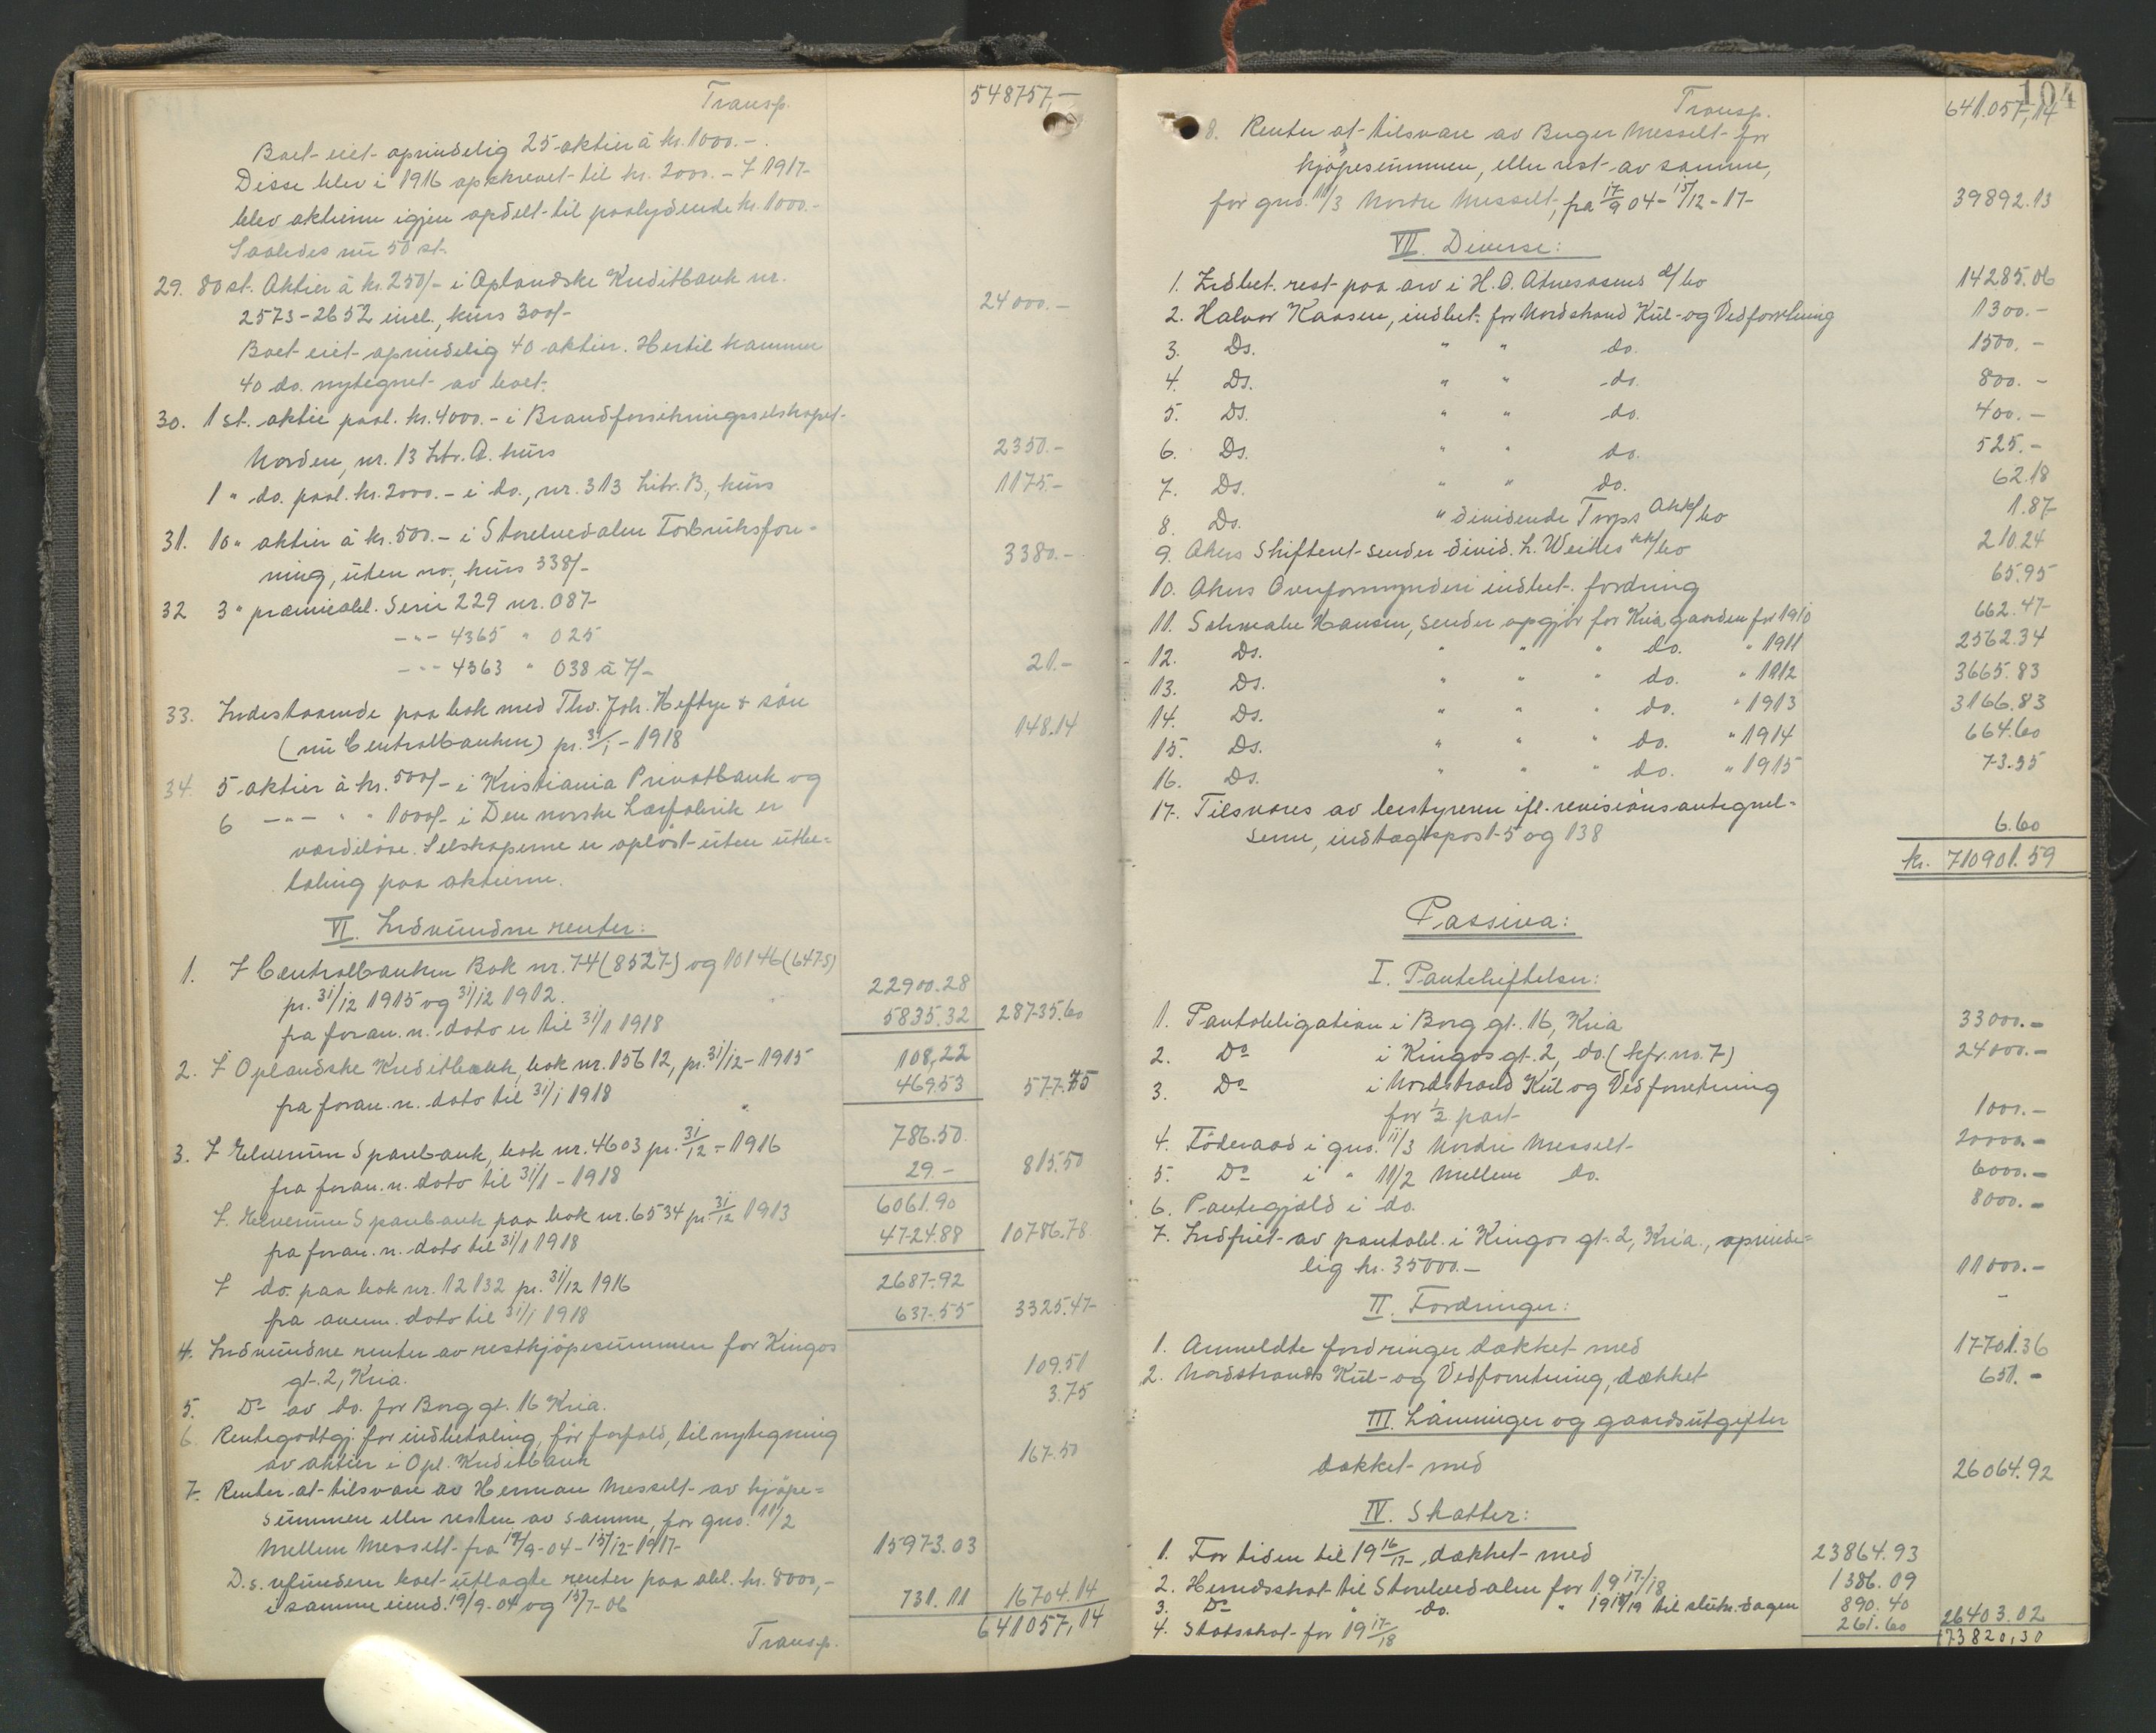 Transp. 548757,-
Boet eiet oprindelig 25 aktier à kr. 1000.-
Disse blev i 1916 opskrevet til kr. 2000.- I 1917
blev aktierne igjen opdelt til paalydende kr. 1000.-
Saaledes nu 50 st.
29. 80 st. Aktier à kr. 250/- i Oplandske Kreditbank nr.
2573-2652 incl., kurs 300/- 24000.-
Boet eiet oprindelig 40 aktier. Hertil kommer
40 do. nytegnet av boet.
30. 1 st. aktie paal. kr. 4000.- i Brandforsikringsselskapet
Norden, nr. 13 Litr. A. kurs 2350.-
1 " do. paal. kr. 2000.- i do., nr. 313 Litr. B, kurs 1175.-
31. 10 " aktier à kr. 500.- i Storelvedalen Forbruksfore-
ning, uten no., kurs 338/- 3380.-
32 3 " præmieobl. Serie 229 nr. 087
-"- 4365 " 025
-"- 4363 " 038 à 7/- 21.-
33. Indestaaende paa bok med Thv. Joh. Heftye & søn
(nu Centralbanken) pr. 31/1 - 1918 148.14
34. 5 aktier à kr. 500/- i Kristiania Privatbank og
6 -"- " " 1000/- i Den norske Lærfabrik er
værdiløse. Selskaperne er opløst uten utbe-
taling paa aktierne.
VI. Indvundne renter:
1. I Centralbanken Bok nr. 74 (8527) og 10146 (6475)
pr. 31/12 1915 og 31/12 1912. 22900.28
fra foran. n. dato er til 31/1 1918 5835.32 28735.60
2. I Oplandske Kreditbank, bok nr. 15612, pr. 31/12 - 1915 108,22
fra foran. n. dato til 31/1 1918 469.53 577.75
3. I Elverum Sparebank, bok nr. 4603 pr. 31/12 - 1916 786.50
fra foran. n. dato til 31/1 - 1918 29.- 815.50
I. Elverum Sparebank paa bok nr. 6534 pr. 31/12 1913 6061.90
fra foran. n. dato til 31/1 1918 4724.88 10786.78
I do. paa bok nr. 12132 pr. 31/12 1916 2687.92
fra anm. dato til 31/1 1918 637.55 3325.47
4. Indvundne renter av restkjøpesummen for Kingos
gt. 2, Kria. 109.51
5. Do av do. for Borg gt. 16 Kria. 3.75
6. Rentegodtgj. for indbetaling, før forfald, til nytegning
av aktier i Opl. Kreditbank 167.50
7. Renter at tilsvare av Herman Messelt av kjøpe-
summen eller resten av samme, for gno. 11/2
Mellem Messelt fra 19/9-04 - 15/12-1917 15973.03
D.s. refunderer boet utlagte renter paa obl. kr. 8000,-
i samme eiend. 19/9-04 og 13/7-06 731.11 16704.14
Transp. 641057,14
104
Transp. 641.057,14
8. Renter at tilsvare av Birger Messelt for
kjøpesummen, eller rest av samme,
for gno. 11/3 Nordre Messelt, fra 17/9 04 - 15/12-17 39892.13
VII. Diverse:
1. Indbet. rest paa arv i H. O. Atnesasens d/bo 14285.06
2. Halvor Kaasen, indbet. for Nordstrand Kul- og Vedforretning 1300.-
3. Ds. " " do. 1500.-
4. Ds. " " do. 800.-
5. Ds. " " do. 400.-
6. Ds. " " do. 525.-
7. Ds. " " do. 62.18
8. Ds. " dividende Torps /bo 1.87
9. Akers Skifteret sender divid. L. Weilles kk/bo 210.24
10. Akers Overformynderi indbet. fordring 65.95
11. Hansen, sender opgjør for Kria gaarden for 1910 662.47
12. Ds. " " " do. " 1911 2562.34
13. Ds. " " " do. " 1912 3665.83
14. Ds. " " " do. " 1913 3166.83
15. Ds. " " " do. " 1914 664.60
16. Ds. " " " do. " 1915 73.35
17. Tilsvares av bestyreren ifl. revisionsantegnel-
serne, indtægtspost 5 og 138 6.60
kr. 710901.59
Passiva:
I. Panteheftelser:
1. Pantobligation i Borg gt. 16, Kria 33000.-
2. Do i Kingos gt. 2, do. (kfr. no. 7) 24000.-
3. Do i Nordstrand Kul og Vedforretning
for 1/2 part 1000.-
4. Føderaad i gno. 11/3 Nordre Messelt 20000.-
5. Do i " 11/2 Mellem do. 6000.-
6. Pantegjæld i do. 8000.-
7. Indfriet av pantobl. i Kingos gt. 2, Kria., oprinde-
lig kr. 35000.- 11000.-
II. Fordringer:
1. Anmeldte fordringer dækket med 17701.36
2. Nordstrands Kul- og Vedforretning, dækket 651.-
III. Lønninger og gaardsutgifter
dækket med 26064.92
IV. Skatter:
1. For tiden til 19 16/17, dækket med 23864.93
2. Herredsskat til Storelvedalen for 19 17/18 1386.09
3. Do " do. " 19 18/19 til slutn. dagen 890.40
4. Statsskat for 19 17/18 261.60 26403.02
173820,30